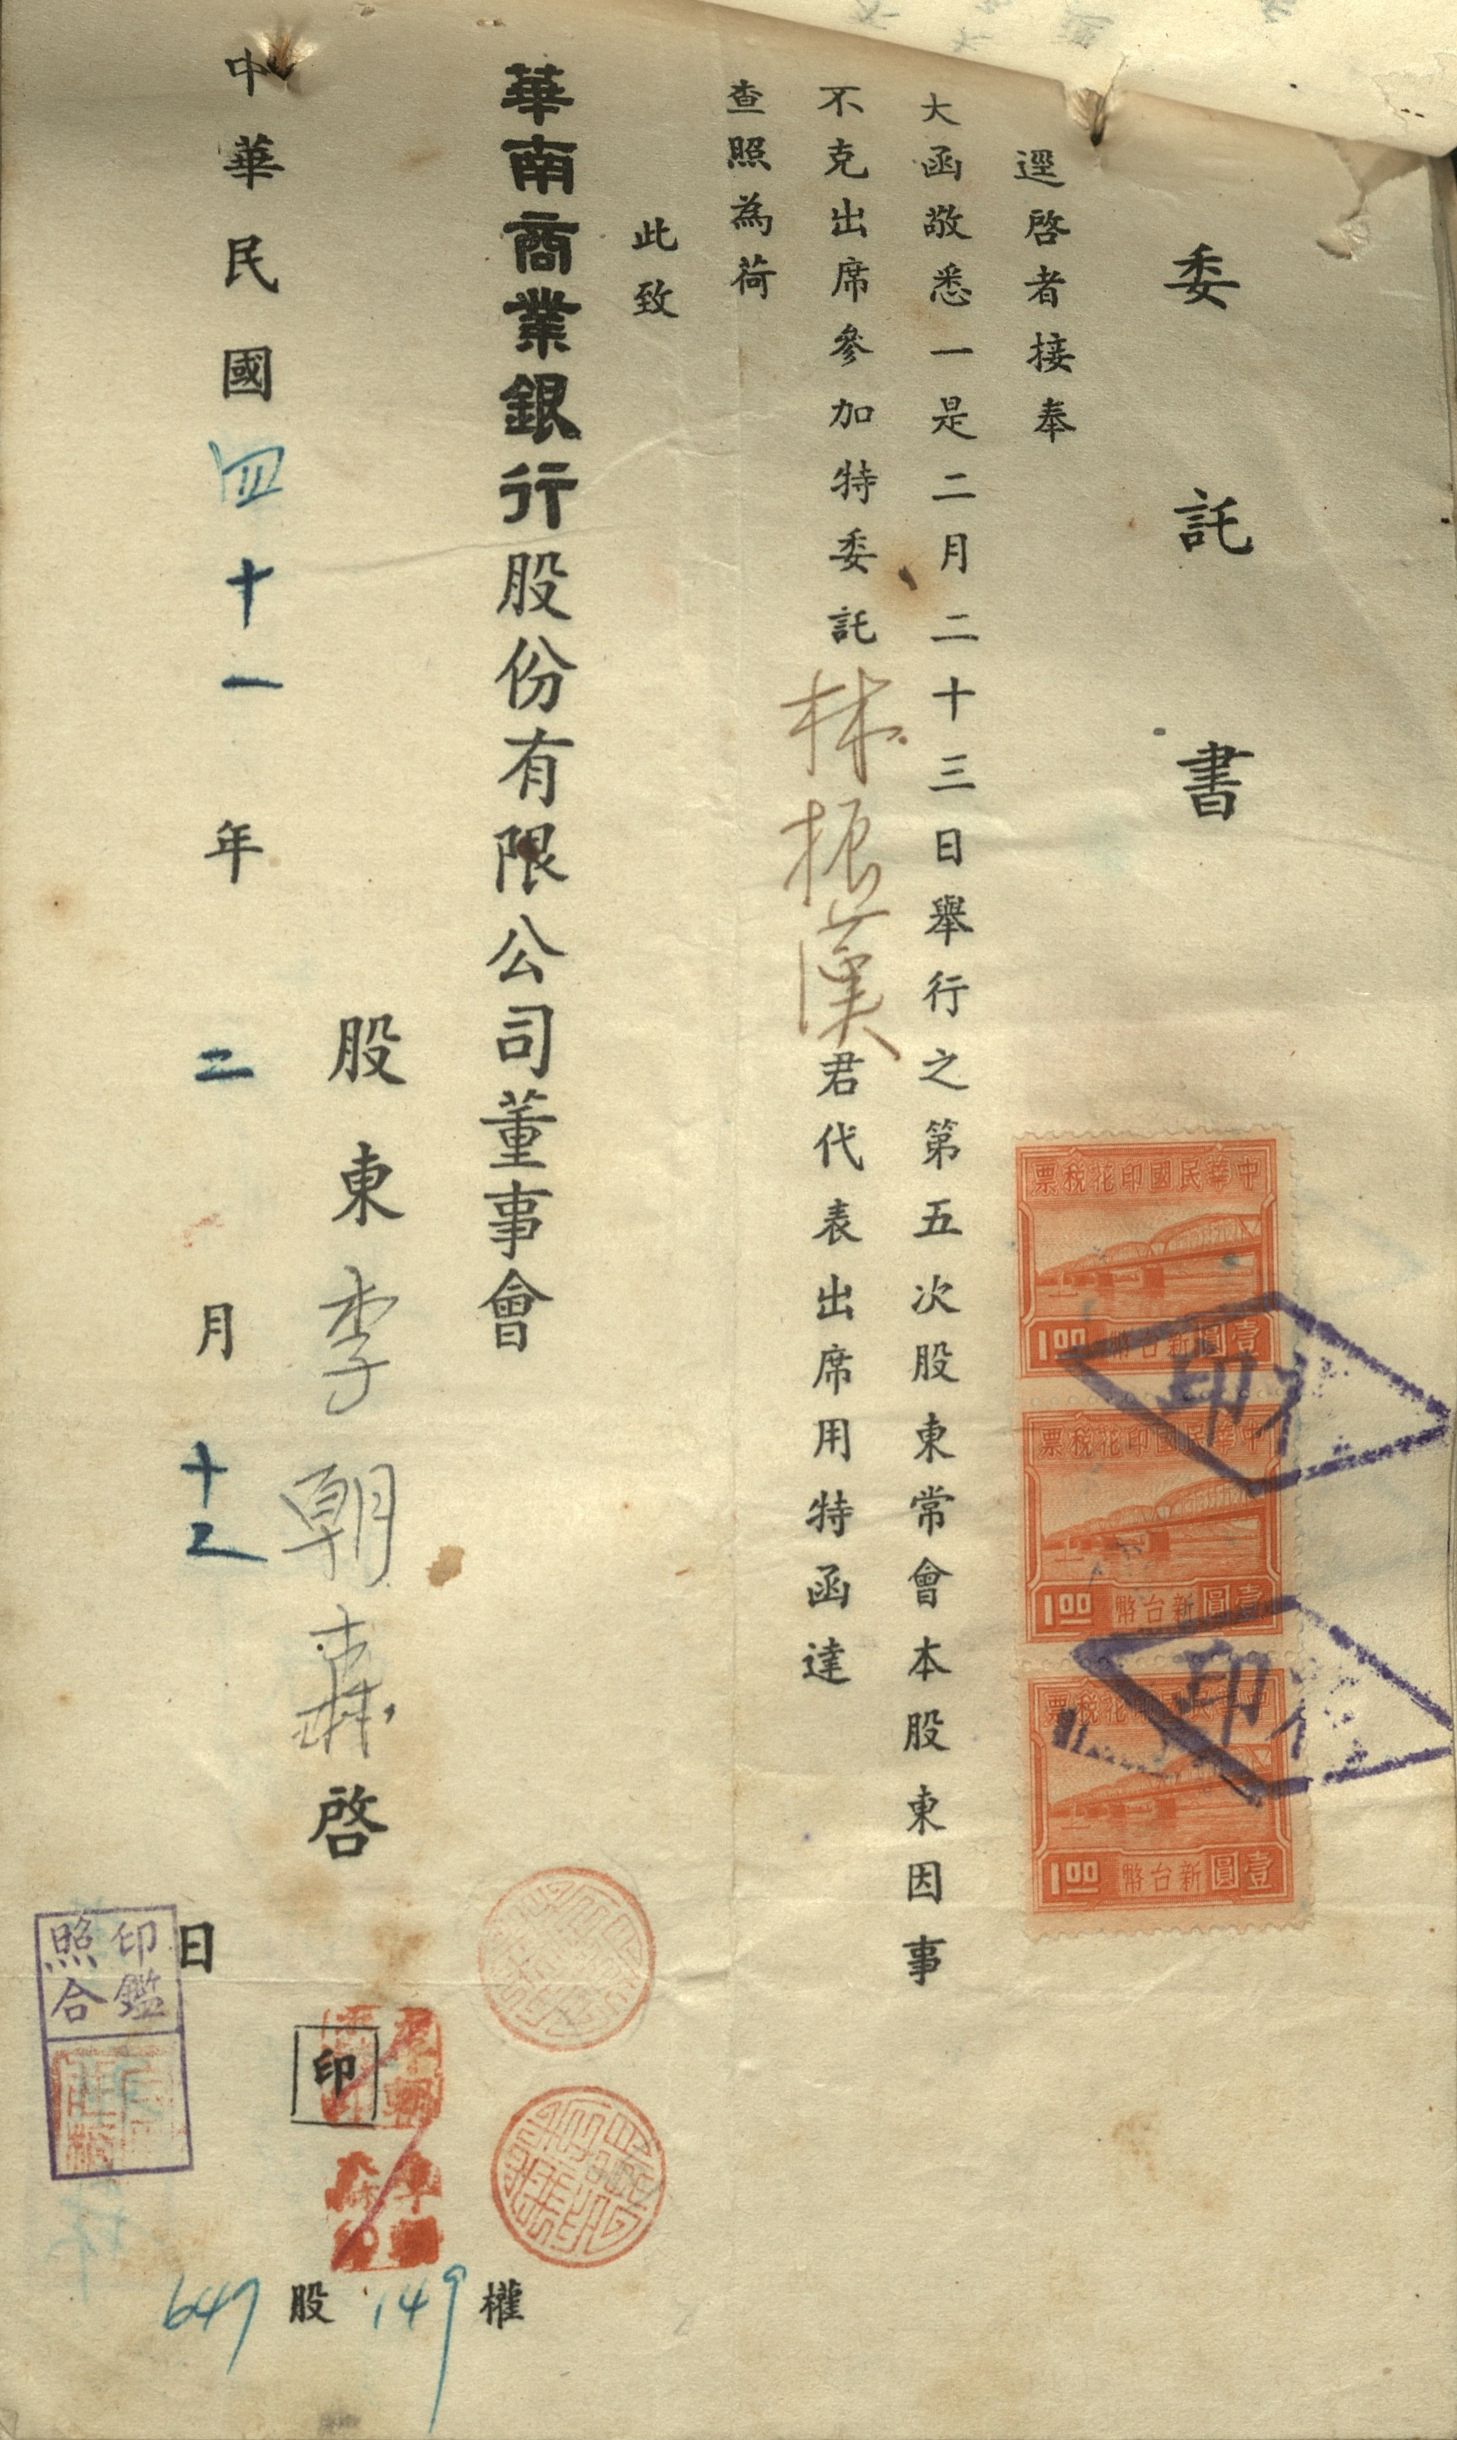 委託書
逕啓者接奉
大函敬悉一是二月二十三日舉行之第五次股東常會本股東因事
不克出席參加特委託林振漢君代表出席用特函達
查照為荷
此致
華南商業銀行股份有限公司董事會
股東李朝森啓
印
中華民國四十一年二月十二日
647股149權
印鑑
照合
中華民國印花稅票
壹圓新台幣
1.00
中華民國印花稅票
壹圓新台幣
1.00
中華民國印花稅票
壹圓新台幣
1.00
印
印